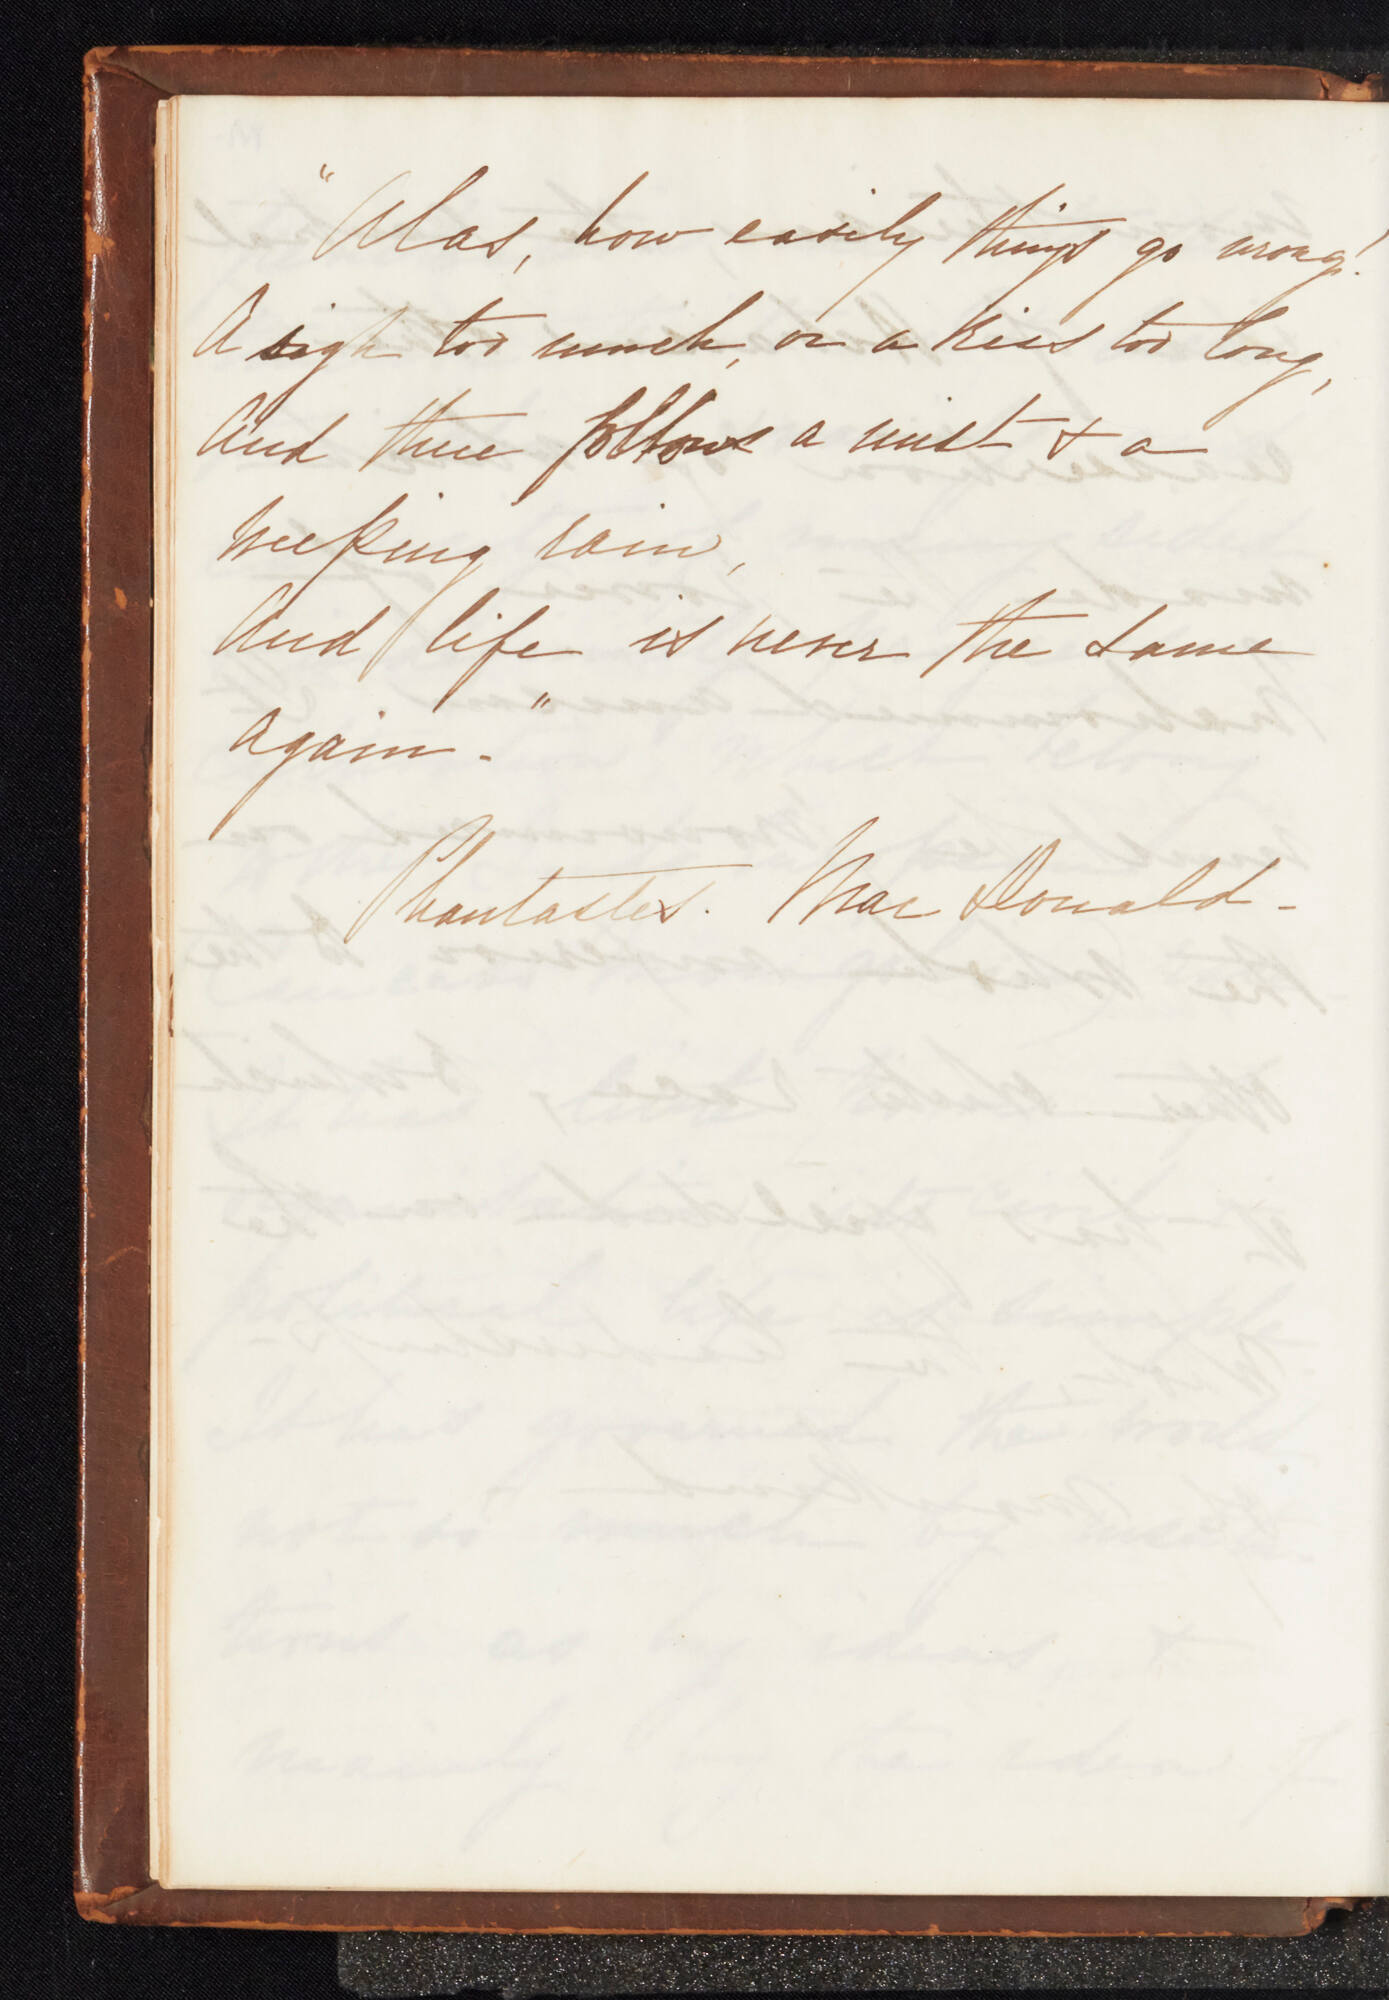 "Alas, how easily things go wrong!
A sigh too much, or a kiss too long,
And there follows a mist & a
weeping rain,
And life is never the same
again."
Phantastes. MacDonald-